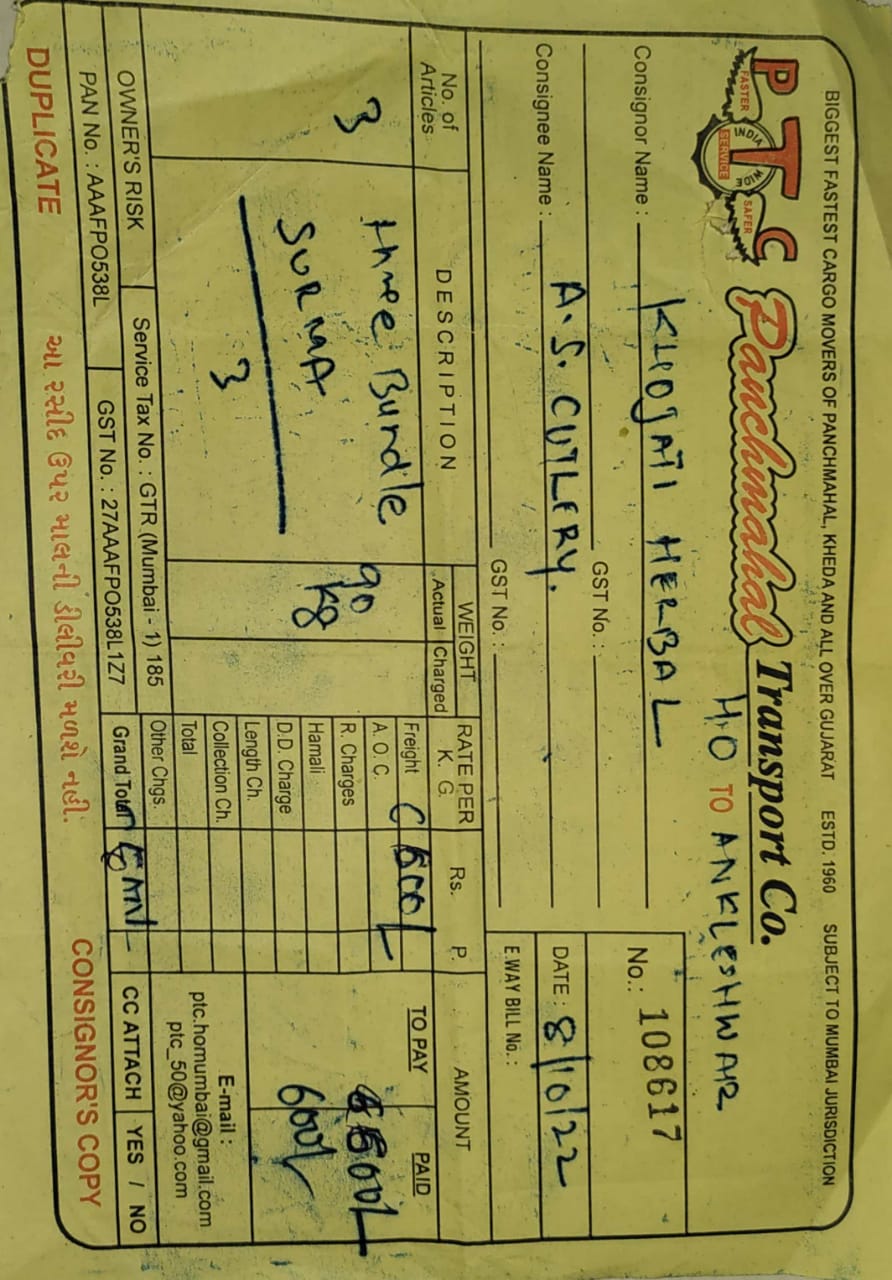 BIGGEST FASTEST CARGO MOVERS OF PANCHMAHAL, KHEDA AND ALL OVER GUJARAT ESTD. 1960 SUBJECT TO MUMBAI JURISDICTION
PTC Panchmahal Transport Co.
FASTER INDIA WIDE SERVICE SAFER
H.O TO ANKLESHWAR
No.: 108617
Consignor Name : KHOJATI HERBAL
GST No. :
DATE : 8/10/22
Consignee Name : A.S. CUTLERY.
GST No. :
E.WAY BILL No. :
No. of Articles
DESCRIPTION
WEIGHT
Actual Charged
RATE PER K. G.
Rs. P.
AMOUNT
TO PAY PAID
3 three Bundle
SURMA
3
90 kg
Freight
A. O. C.
R. Charges
Hamali
D.D. Charge
Length Ch.
Collection Ch.
Total
Other Chgs.
Grand Total
600/
E-mail :
ptc.homumbai@gmail.com
ptc_50@yahoo.com
OWNER'S RISK Service Tax No. : GTR (Mumbai - 1) 185
PAN No. : AAAFPO538L GST No. : 27AAAFPO538L1Z7
CC ATTACH YES / NO
DUPLICATE આ રસીદ ઉપર માલની ડીલીવરી મળશે નહી. CONSIGNOR'S COPY